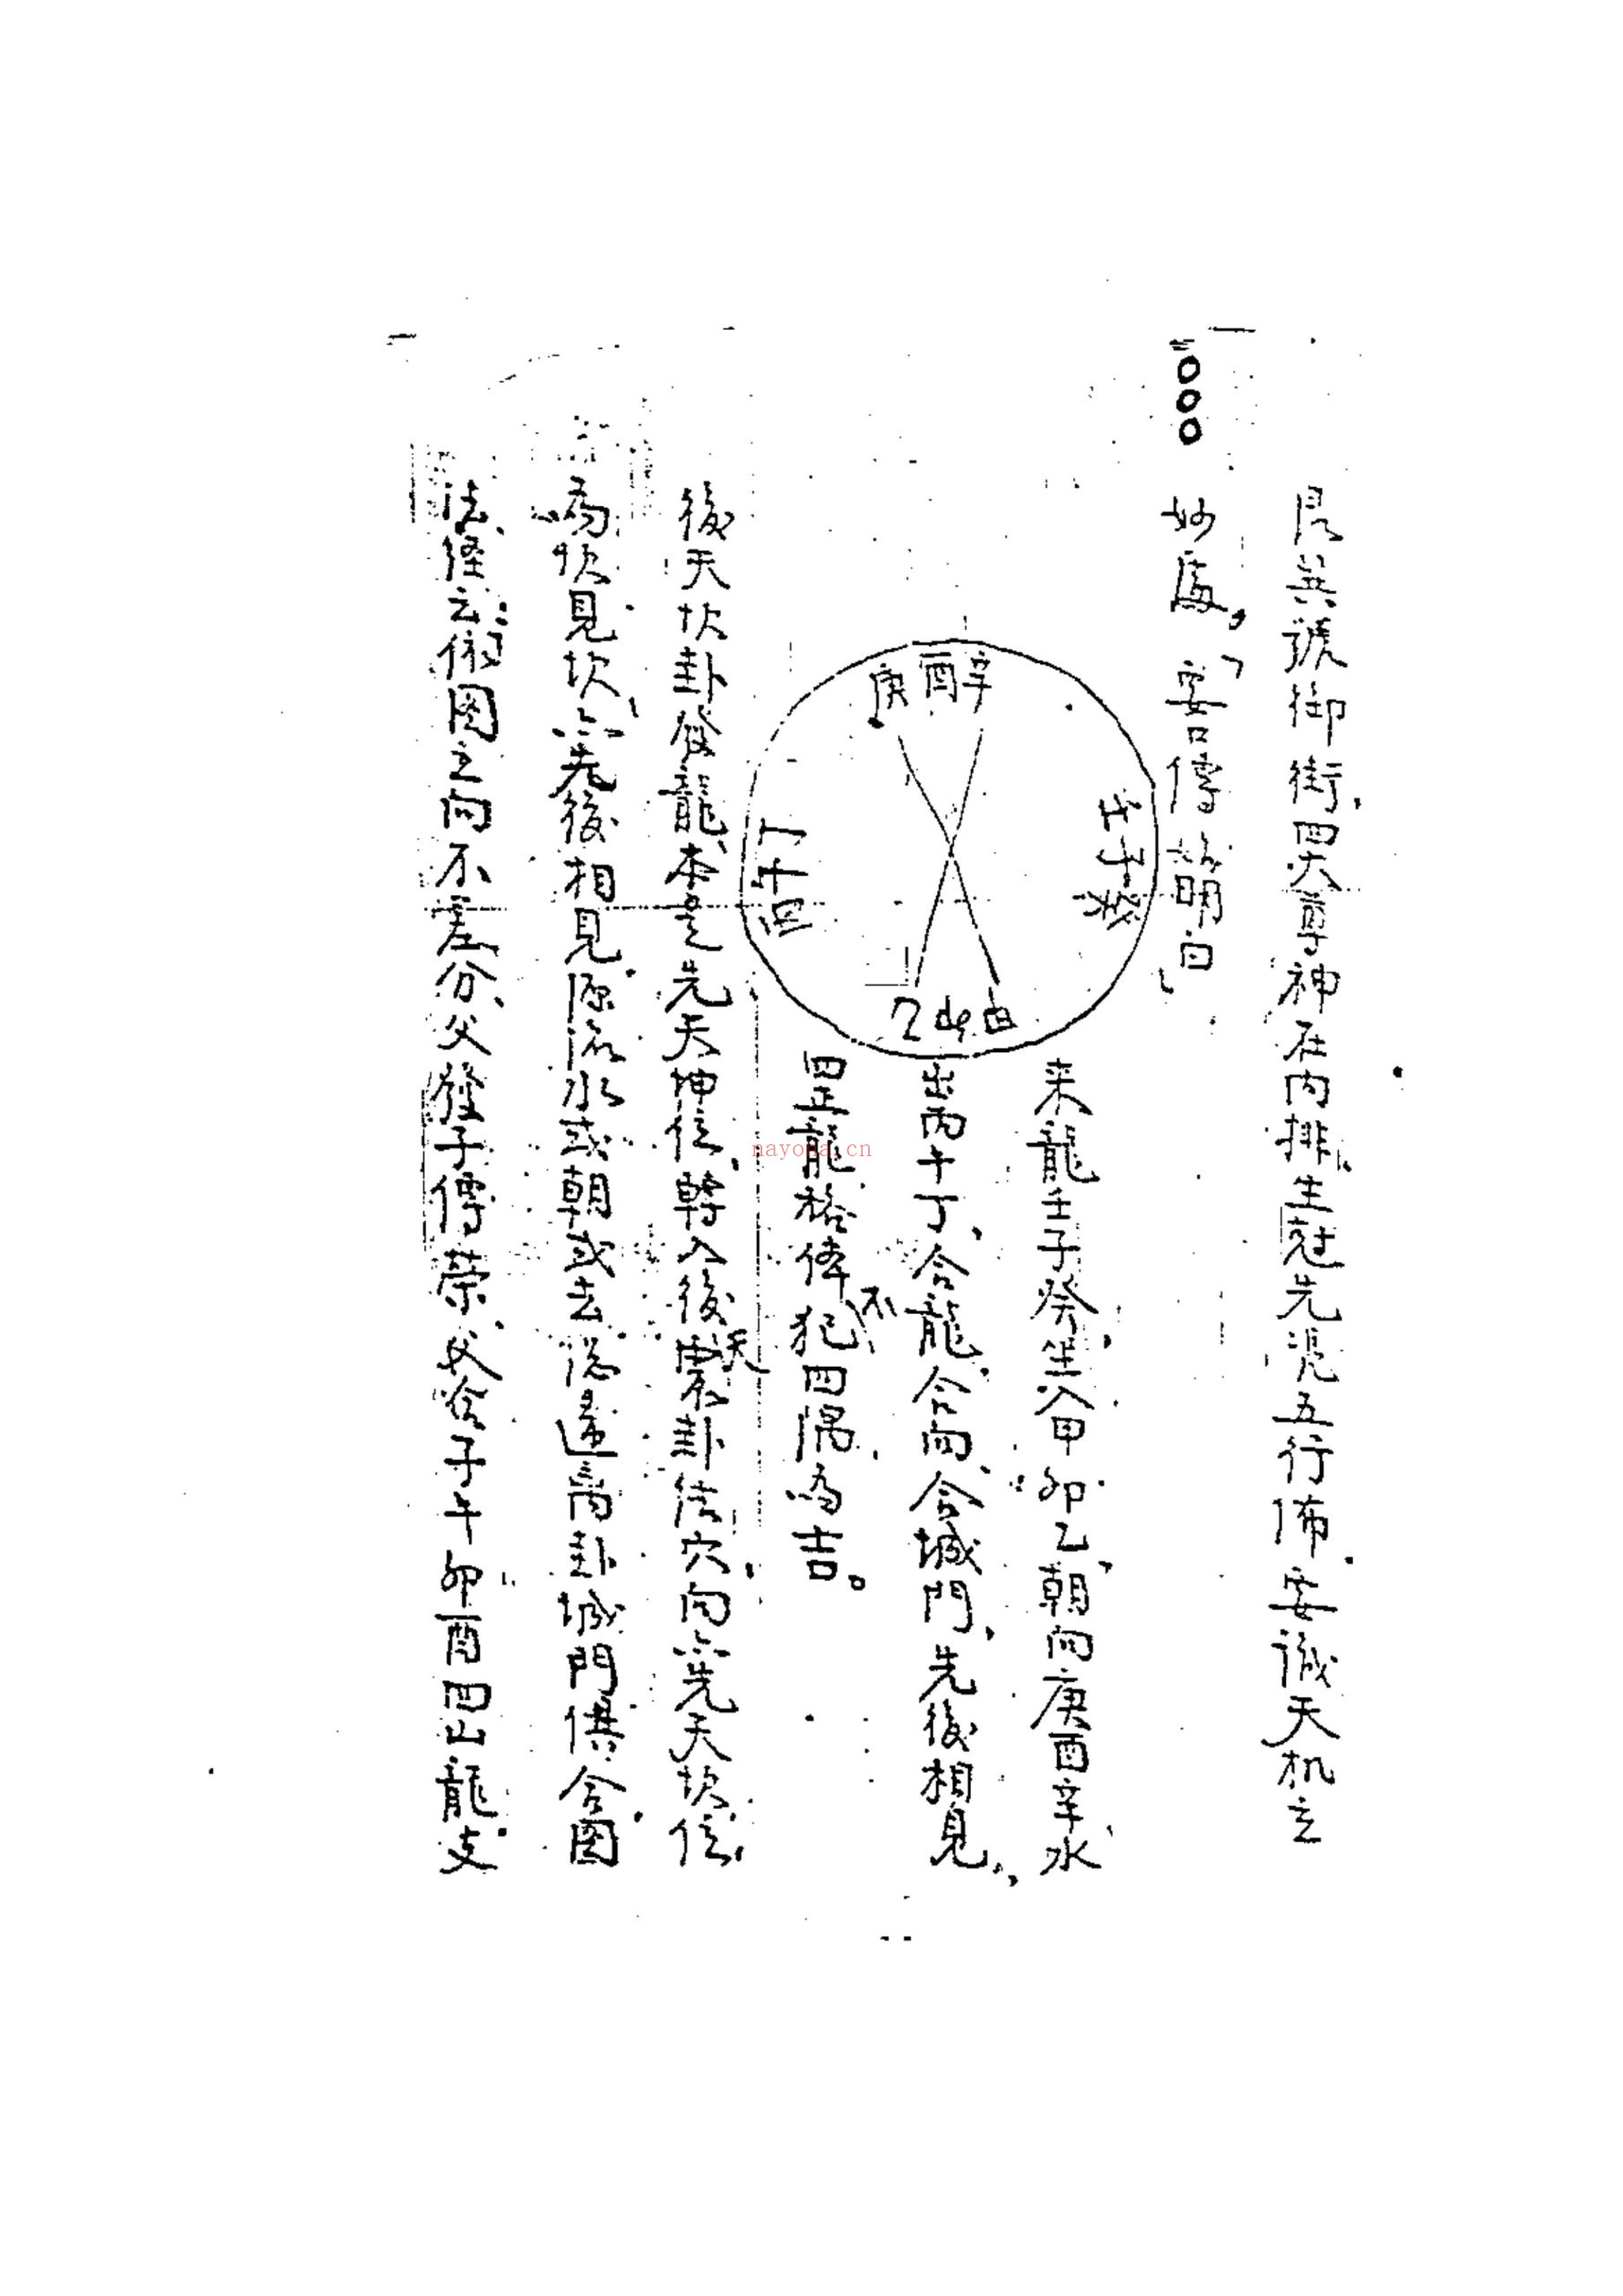 艮巽號御街、四大尊神在内排、生尅先覓五行佈、妄誠天机之
妙處、妄傳萌白、
庚酉辛
壬子癸
丙午丁
甲卯乙
来龍壬子癸、坐入甲卯乙、朝向庚酉辛、水
出丙午丁、合龍、合向、合城門、先後相見、
四正龍格俸不犯四隅、為吉。
後天坎卦發龍、本是先天坤位、轉入後天震卦結穴、向亦先天坎位、
為坎見坎、亦先後相見、源流水或朝或去、總歸离卦城門、俱合图
法、経云、依图立向不差分、父發子傳荣、子午卯酉四山龍支
nayona.cn